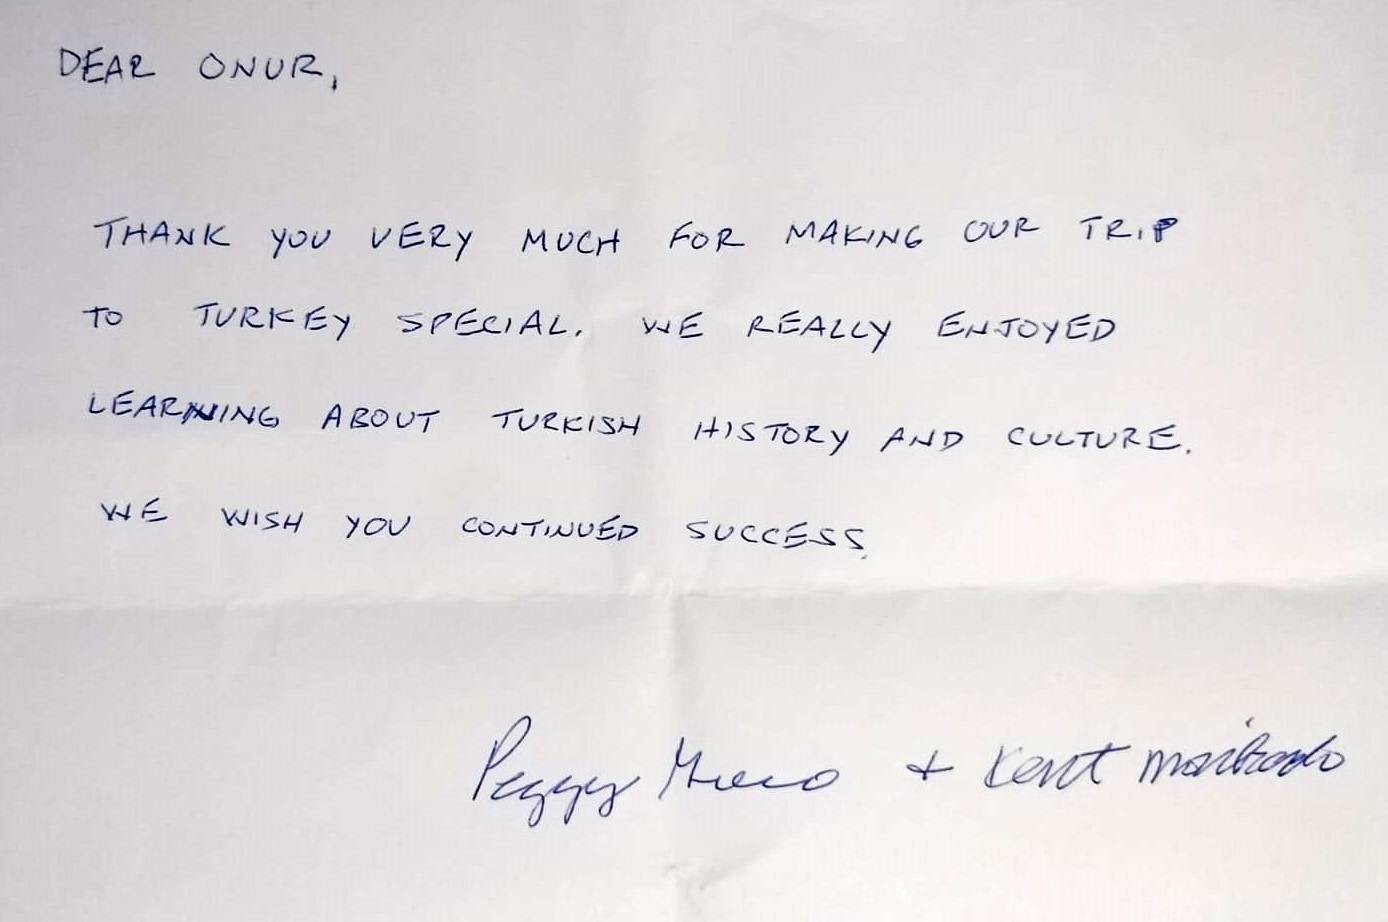 DEAR ONUR,
THANK YOU VERY MUCH FOR MAKING OUR TRIP
TO TURKEY SPECIAL. WE REALLY ENJOYED
LEARNING ABOUT TURKISH HISTORY AND CULTURE.
WE WISH YOU CONTINUED SUCCESS.
Peggy + Kent